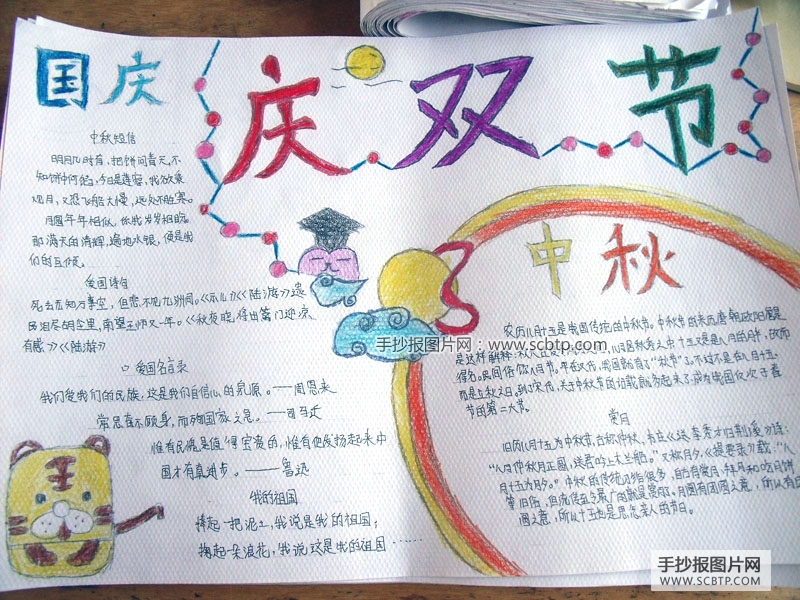 国庆
庆双节
中秋短信
明月几时有,把饼问青天,不
知饼中何馅,今日是莲蓉,我欲乘
观月,又恐飞船太慢,远处不胜寒。
月圆年年相似,你我岁岁相盼。
那满天的清辉,遍地水银,便是我
们的互传。
爱国诗句
死去元知万事空,但悲不见九洲同。《示儿》《陆游》遗
民泪尽胡尘里,南望王师又一年。《秋夜晓将出篱门迎凉
有感》《陆游》
爱国名言录
我们爱我们的民族,这是我们自信心的泉源。——周恩来
常思奋不顾身,而殉国家之急。——司马迁
惟有民魂是值得宝贵的,惟有他发扬起来中
国才有真进步。——鲁迅
我的祖国
捧起一把泥土,我说是我的祖国;
掬起一朵浪花,我说这是我的祖国……
王
中秋
农历八月十五是我国传统的中秋节。中秋节的来历唐朝欧阳詹是
是这样解释:秋
得名。民间俗
节的第二大节。
赏月
旧历八月十五为中秋节,古称仲秋。
“八月仲秋月正圆,送君吟上木兰船。”又称月夕,《提要录》载:“八
月十五为月夕。”中秋的传统习俗很多,自古有赏月、拜月和吃月饼
等旧俗,但流传至今最广的就是赏月。月圆有团圆之意,所以
圆之意,所以十五也是思念亲人的节日。
手抄报图片网:www.scbtp.com
手抄报图片网
WWW.SCBTP.COM